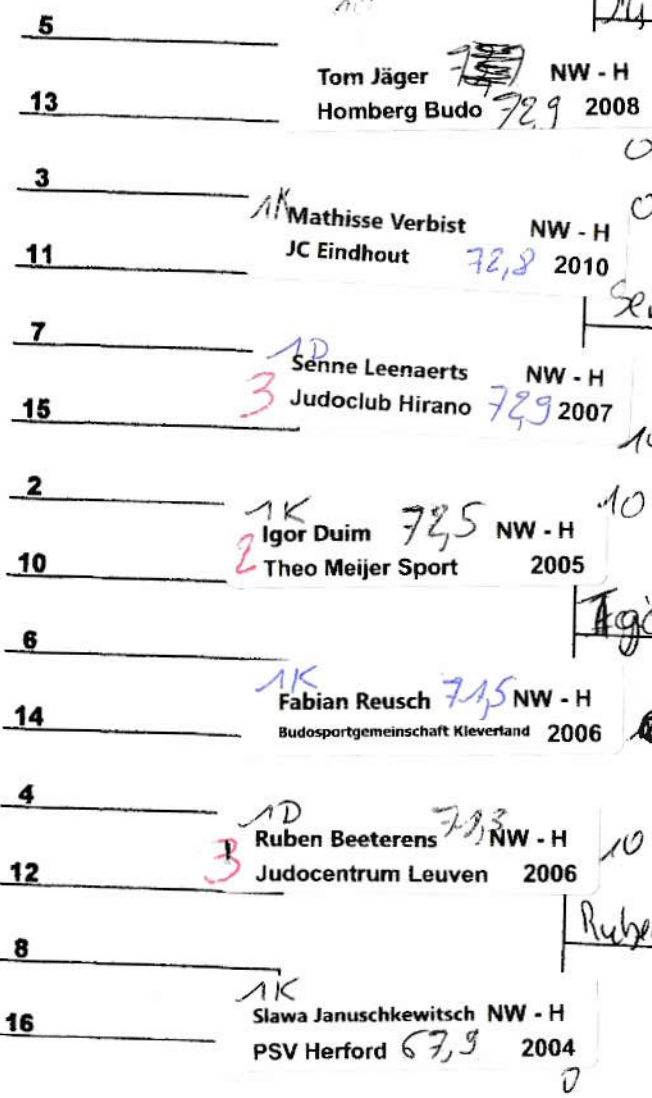 5
Tom Jäger NW - H
13
Homberg Budo 72,9 2008
3
1K
Mathisse Verbist NW - H
11
JC Eindhout 72,8 2010
7
1D
Senne Leenaerts NW - H
3 Judoclub Hirano 72,9 2007
15
2
1K 10
Igor Duim 72,5 NW - H
2 Theo Meijer Sport 2005
10
6
1K
Fabian Reusch 71,5 NW - H
14
Budosportgemeinschaft Kleverland 2006
4
1D
Ruben Beeterens NW - H 10
3 Judocentrum Leuven 2006
12
8
1K
Slawa Januschkewitsch NW - H
16
PSV Herford 67,9 2004
0